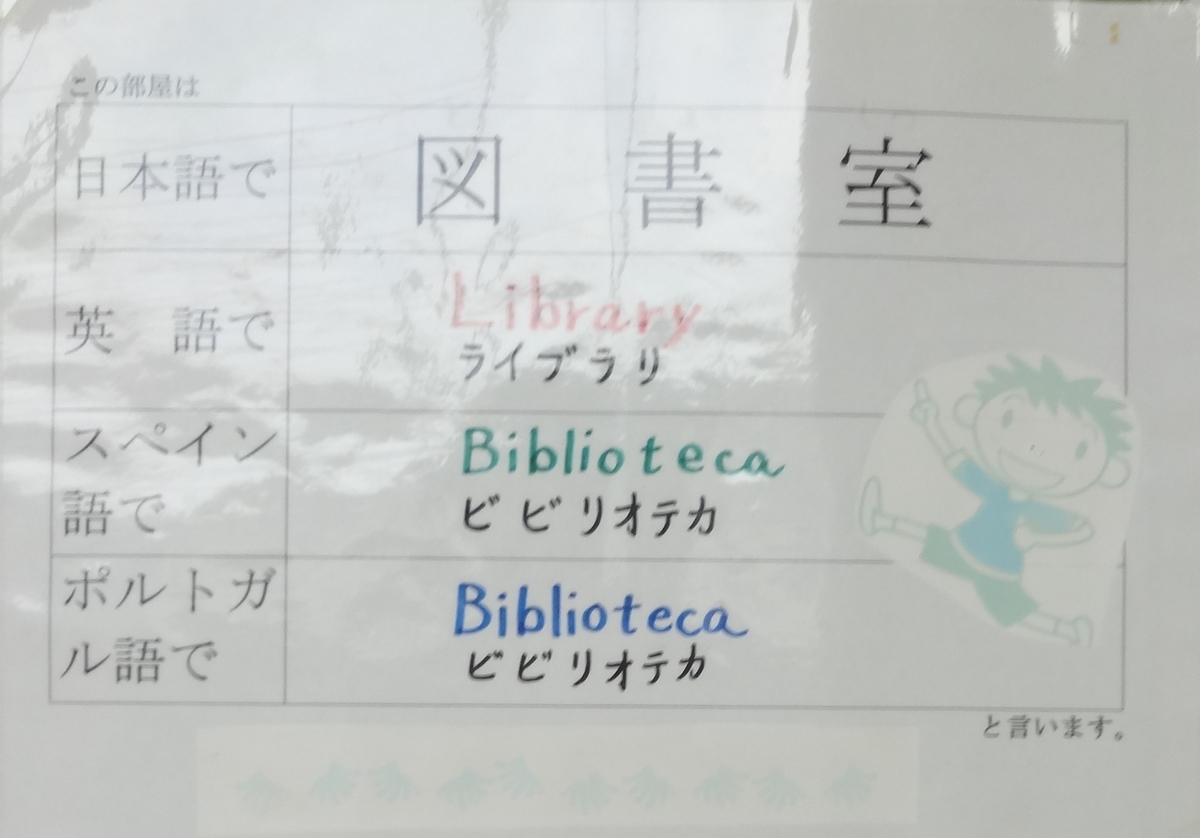 この部屋は
日本語で 図書室
英 語で Library
ライブラリ
スペイン Biblioteca
語で ビビリオテカ
ポルトガ Biblioteca
ル語で ビビリオテカ
と言います。